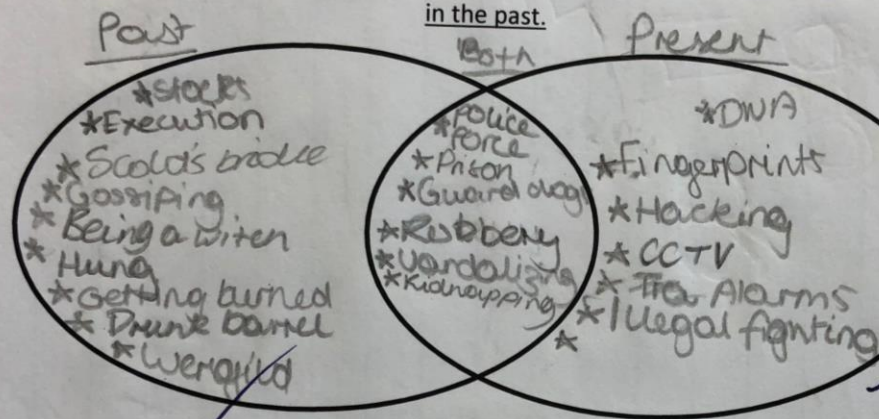 in the past.
Past
Both
Present
*Stocks
*Execution
*Scold's bridle
*Gossiping
*Being a witch
*Hung
*Getting burned
*Drunk barrel
*Wergild
*Police
force
*Prison
*Guard dogs
*Robbery
*Vandalising
*Kidnapping
*DNA
*Fingerprints
*Hacking
*CCTV
*Alarms
*Illegal fighting
*